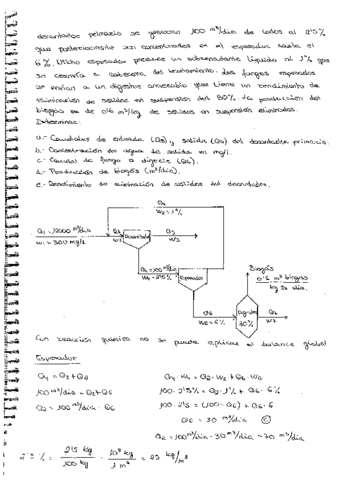 decantador primario se generan 100 m³/día de lodos al 2'5%
que posteriormente son concentrados en el espesador hasta el
6%. Dicho espesador produce un sobrenadante líquido al 1% que
se reenvía a cabecera del tratamiento. Los fangos espesados
se envían a un digestor anaerobio que tiene un rendimiento de
eliminación de sólidos en suspensión del 30%. La producción del
biogás es de 0'6 m³/kg de sólidos en suspensión eliminados.
Determinar:
a.- Caudales de entrada (Q3) y salida (Q3) del decantador primario.
b.- Concentración del agua de salida en mg/l.
c.- Caudal de fango a digestor (Q6).
d.- Producción de biogás (m³/día).
e.- Rendimiento de eliminación de sólidos del decantador.
Q2
W2 = 1%
Q1 = 12000 m³/día
W1 = 300 mg/l
Decantador
Q3
W3
Q4 = 100 m³/día
W4 = 2'5%
Espesador
Biogás
0'6 m³ biogás
kg Ss elim.
Q6
W6 = 6%
Digestor
30%
W7
Con reacción química no se puede aplicar el balance global
Espesador
Q4 = Q2 + Q6
Q4 · W4 = Q2 · W2 + Q6 · W6
100 m³/día = Q2 + Q6
100 · 2'5% = Q2 · 1% + Q6 · 6%
Q2 = 100 m³/día - Q6
100 · 2'5 = (100 - Q6) + Q6 · 6
Q6 = 30 m³/día
Q2 = 100 m³/día - 30 m³/día = 70 m³/día
2'5% = 2'5 kg / 100 kg · 10³ kg / 1 m³ = 25 kg/m³